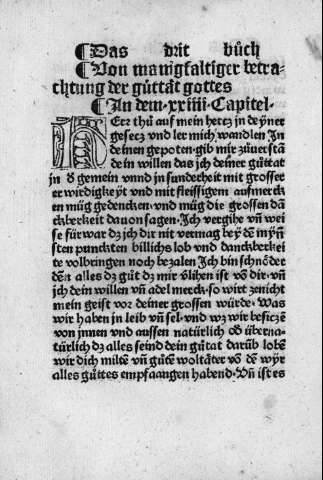 ¶Das drit bůch
¶Von manigfaltiger betra-
chtung der gůttåt gottes
¶In dem·xxiiii·Capitel·
HErr thů auf mein hertz in deyner
gesetz vnd ler mich wandlen In
deinen gepoten·gib mir zůuerstā
de in willen das jch deiner gůttat
jn d gemein vnnd jn sunderheit mit grosser
er wirdigkeyt vnd mit fleissigem aufmerck
en müg gedencken·vnd müg die grossen dā
ckberkeit dauon sagen·Jch vergihe vñ wei
se fürwar dz jch dir nit vermag bey dē mȳn
sten punckten billichs lob vnd danckberkei
te volbringen noch bezalen Jch bin schnöder
dēn alles dz gůt dz mir v̄lihen ist võ dir·vñ
jch dein willen vñ adel merck·so wirt zenicht
mein geist voꝛ deiner grossen würde·Was
wir haben jn leib vñ sel·vnd wz wir besiczē
von jnnen vnd aussen natürlich oð überna-
türlich dz alles seind dein gůtat darūb lobē
wir dich miltē vñ gůtē woltåter võ dē wȳr
alles gůttes empfaangen habend·Vñ ist es